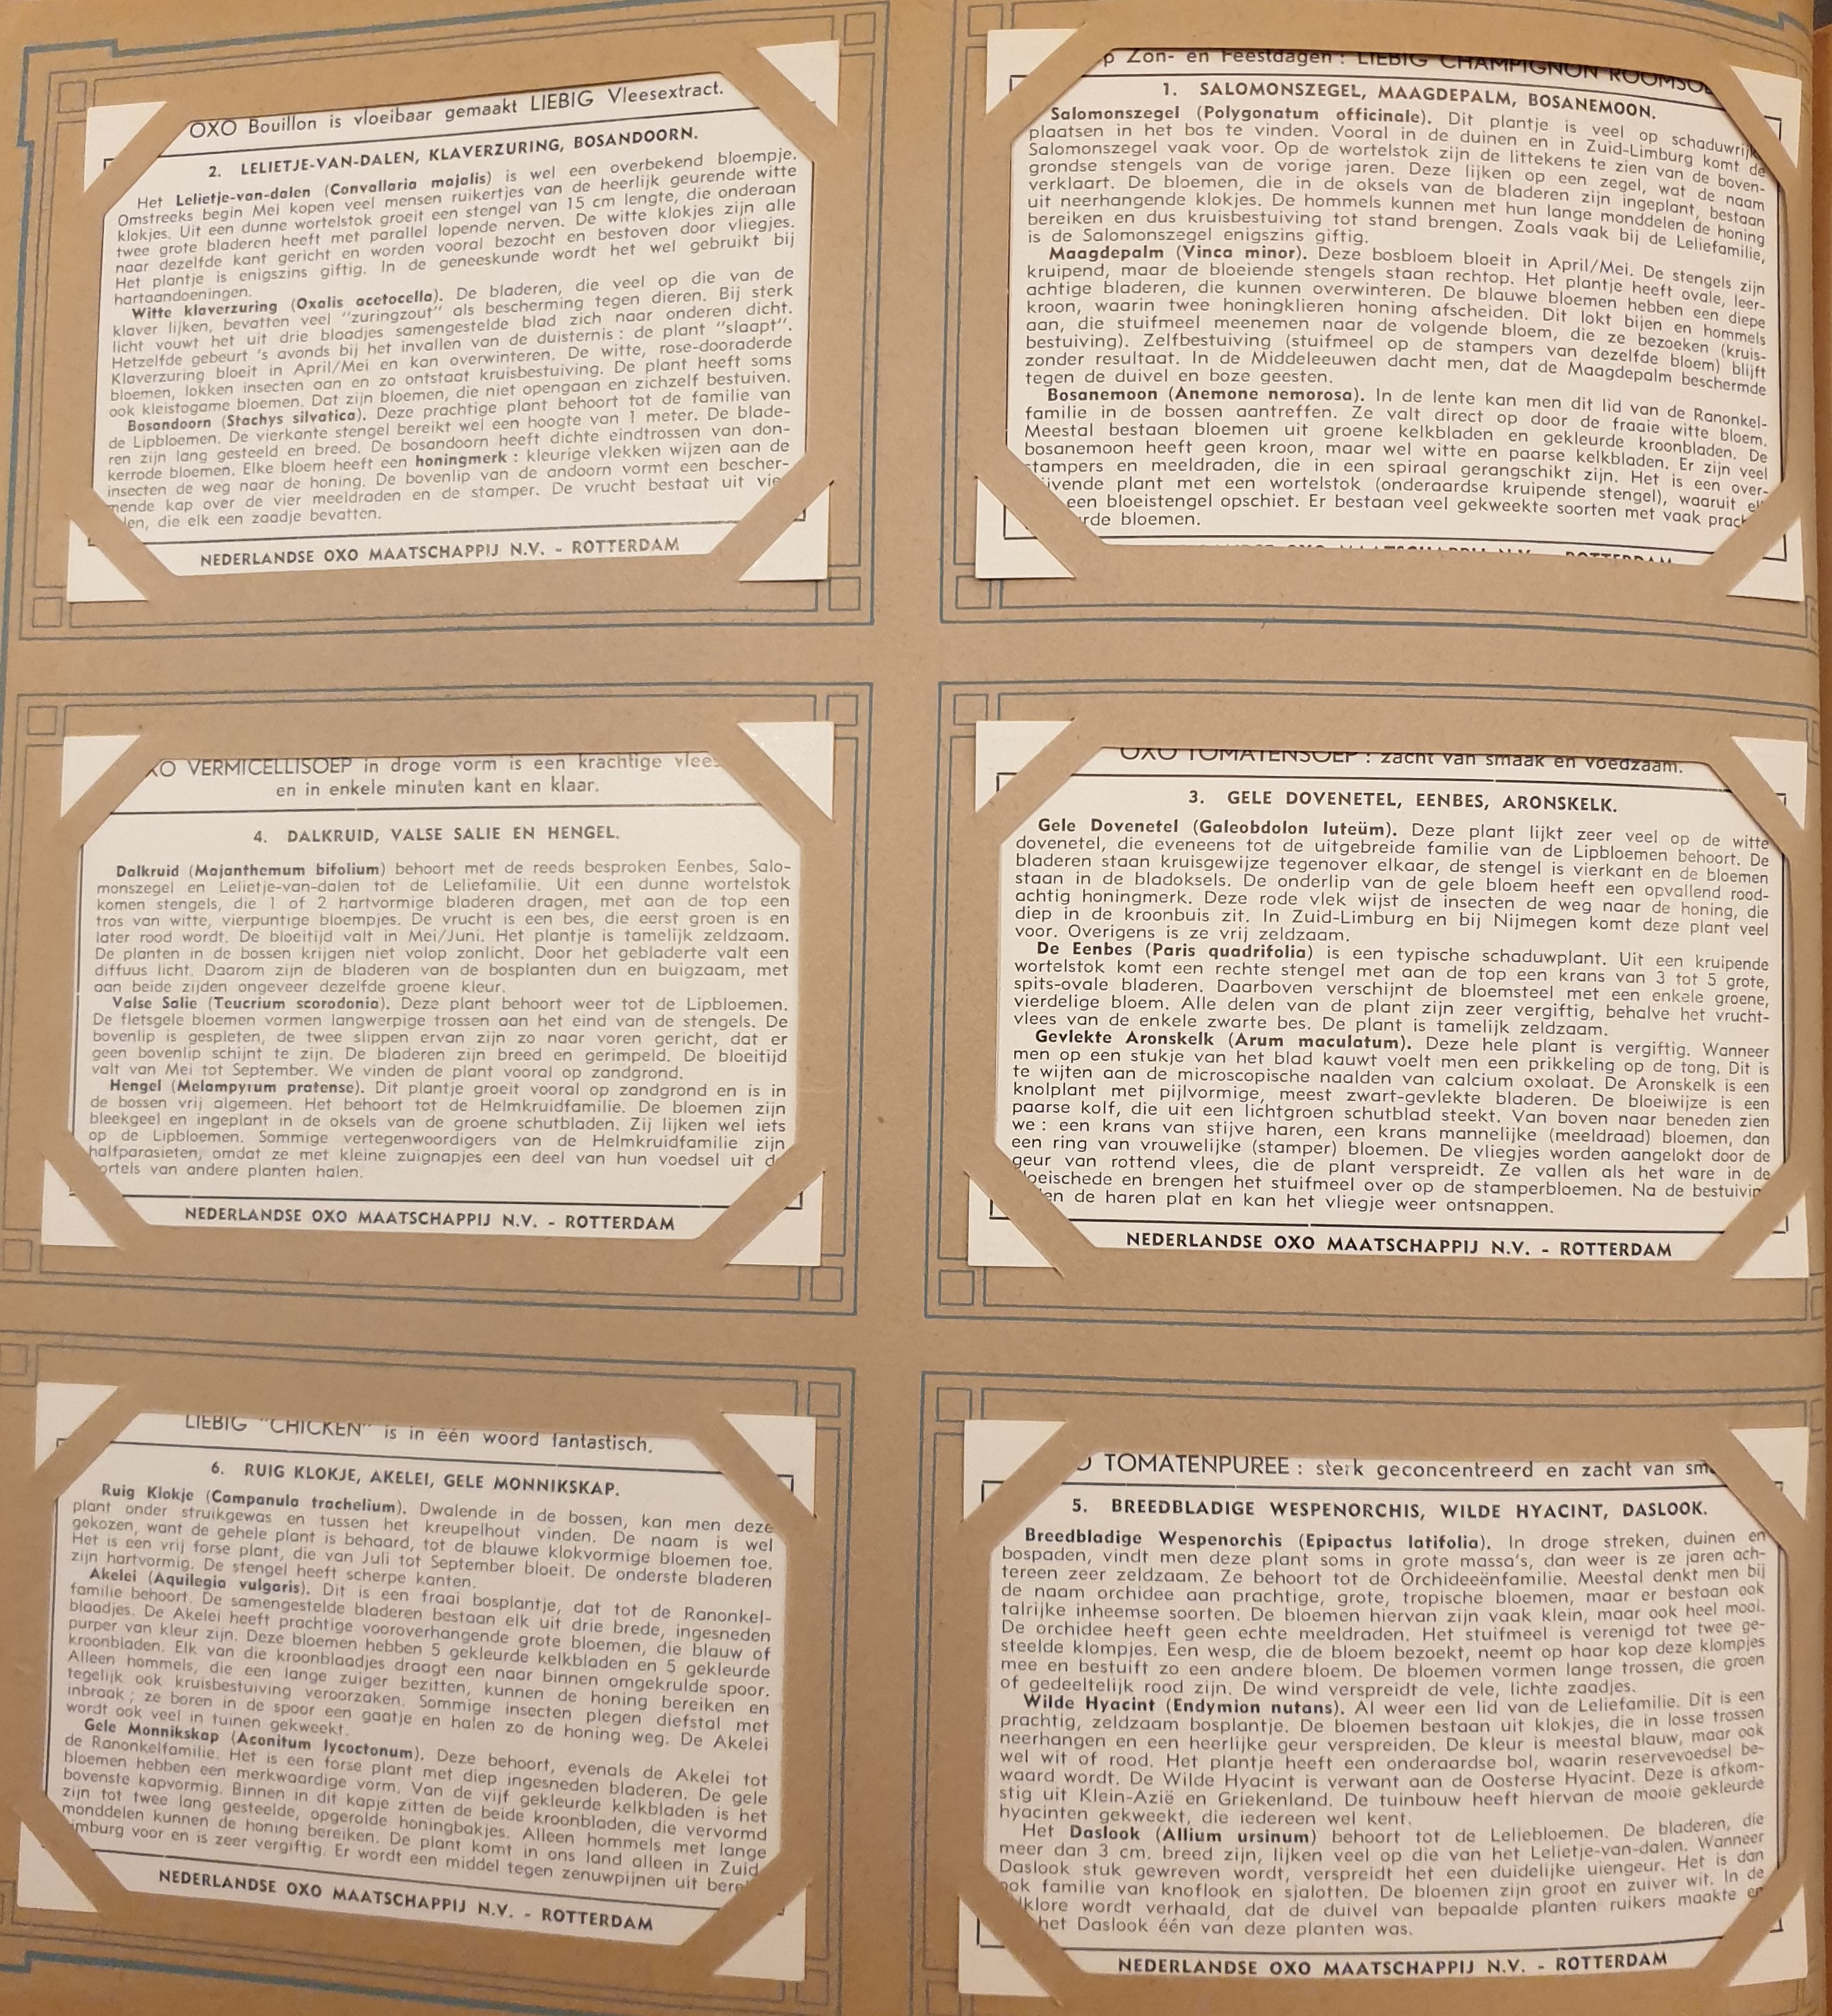 OXO Bouillon is vloeibaar gemaakt LIEBIG Vleesextract.
2. LELIETJE-VAN-DALEN, KLAVERZURING, BOSANDOORN.
Het Lelietje-van-dalen (Convallaria majalis) is wel een overbekend bloempje.
Omstreeks begin Mei kopen veel mensen ruikertjes van de heerlijk geurende witte
klokjes. Uit een dunne wortelstok groeit een stengel van 15 cm lengte, die onderaan
twee grote bladeren heeft met parallel lopende nerven. De witte klokjes zijn alle
naar dezelfde kant gericht en worden vooral bezocht en bestoven door vliegjes.
Het plantje is enigszins giftig. In de geneeskunde wordt het wel gebruikt bij
hartaandoeningen.
Witte klaverzuring (Oxalis acetocella). De bladeren, die veel op die van de
klaver lijken, bevatten veel "zuringzout" als bescherming tegen dieren. Bij sterk
licht vouwt het uit drie blaadjes samengestelde blad zich naar onderen dicht.
Hetzelfde gebeurt 's avonds bij het invallen van de duisternis : de plant "slaapt".
Klaverzuring bloeit in April/Mei en kan overwinteren. De witte, rose-dooraderde
bloemen, lokken insecten aan en zo ontstaat kruisbestuiving. De plant heeft soms
ook kleistogame bloemen. Dat zijn bloemen, die niet opengaan en zichzelf bestuiven.
Bosandoorn (Stachys silvatica). Deze prachtige plant behoort tot de familie van
de Lipbloemen. De vierkante stengel bereikt wel een hoogte van 1 meter. De blade-
ren zijn lang gesteeld en breed. De bosandoorn heeft dichte eindtrossen van don-
kerrode bloemen. Elke bloem heeft een honingmerk : kleurige vlekken wijzen aan de
insecten de weg naar de honing. De bovenlip van de andoorn vormt een bescher-
mende kap over de vier meeldraden en de stamper. De vrucht bestaat uit
die elk een zaadje bevatten.
NEDERLANDSE OXO MAATSCHAPPIJ N.V. - ROTTERDAM
Zon- en Feestdagen : LIEBIG CHAMPIGNON
1. SALOMONSZEGEL, MAAGDEPALM, BOSANEMOON.
Salomonszegel (Polygonatum officinale). Dit plantje is veel op schaduwrijke
plaatsen in het bos te vinden. Vooral in de duinen en in Zuid-Limburg komt de
Salomonszegel vaak voor. Op de wortelstok zijn de littekens te zien van de boven-
grondse stengels van de vorige jaren. Deze lijken op een zegel, wat de naam
verklaart. De bloemen, die in de oksels van de bladeren zijn ingeplant, bestaan
uit neerhangende klokjes. De hommels kunnen met hun lange monddelen de honing
bereiken en dus kruisbestuiving tot stand brengen. Zoals vaak bij de Leliefamilie,
is de Salomonszegel enigszins giftig.
Maagdepalm (Vinca minor). Deze bosbloem bloeit in April/Mei. De stengels zijn
kruipend, maar de bloeiende stengels staan rechtop. Het plantje heeft ovale, leer-
achtige bladeren, die kunnen overwinteren. De blauwe bloemen hebben een diepe
kroon, waarin twee honingklieren honing afscheiden. Dit lokt bijen en hommels
aan, die stuifmeel meenemen naar de volgende bloem, die ze bezoeken (kruis-
bestuiving). Zelfbestuiving (stuifmeel op de stampers van dezelfde bloem) blijft
zonder resultaat. In de Middeleeuwen dacht men, dat de Maagdepalm beschermde
tegen de duivel en boze geesten.
Bosanemoon (Anemone nemorosa). In de lente kan men dit lid van de Ranonkel-
familie in de bossen aantreffen. Ze valt direct op door de fraaie witte bloem.
Meestal bestaan bloemen uit groene kelkbladen en gekleurde kroonbladen. De
bosanemoon heeft geen kroon, maar wel witte en paarse kelkbladen. Er zijn veel
stampers en meeldraden, die in een spiraal gerangschikt zijn. Het is een over-
ivende plant met een wortelstok (onderaardse kruipende stengel), waaruit
een bloeistengel opschiet. Er bestaan veel gekweekte soorten met vaak
rde bloemen.
ROTTERDAM
XO VERMICELLISOEP in droge vorm is een krachtige vlees
en in enkele minuten kant en klaar.
4. DALKRUID, VALSE SALIE EN HENGEL.
Dalkruid (Majanthemum bifolium) behoort met de reeds besproken Eenbes, Salo-
monszegel en Lelietje-van-dalen tot de Leliefamilie. Uit een dunne wortelstok
komen stengels, die 1 of 2 hartvormige bladeren dragen, met aan de top een
tros van witte, vierpuntige bloempjes. De vrucht is een bes, die eerst groen is en
later rood wordt. De bloeitijd valt in Mei/Juni. Het plantje is tamelijk zeldzaam.
De planten in de bossen krijgen niet volop zonlicht. Door het gebladerte valt een
diffuus licht. Daarom zijn de bladeren van de bosplanten dun en buigzaam, met
aan beide zijden ongeveer dezelfde groene kleur.
Valse Salie (Teucrium scorodonia). Deze plant behoort weer tot de Lipbloemen.
De fletsgele bloemen vormen langwerpige trossen aan het eind van de stengels. De
bovenlip is gespleten, de twee slippen ervan zijn zo naar voren gericht, dat er
geen bovenlip schijnt te zijn. De bladeren zijn breed en gerimpeld. De bloeitijd
valt van Mei tot September. We vinden de plant vooral op zandgrond.
Hengel (Melampyrum pratense). Dit plantje groeit vooral op zandgrond en is in
de bossen vrij algemeen. Het behoort tot de Helmkruidfamilie. De bloemen zijn
bleekgeel en ingeplant in de oksels van de groene schutbladen. Zij lijken wel iets
op de Lipbloemen. Sommige vertegenwoordigers van de Helmkruidfamilie zijn
halfparasieten, omdat ze met kleine zuignapjes een deel van hun voedsel uit d
ortels van andere planten halen.
NEDERLANDSE OXO MAATSCHAPPIJ N.V. - ROTTERDAM
OXO TOMATENSOEP : zacht van smaak en voedzaam.
3. GELE DOVENETEL, EENBES, ARONSKELK.
Gele Dovenetel (Galeobdolon luteüm). Deze plant lijkt zeer veel op de witte
dovenetel, die eveneens tot de uitgebreide familie van de Lipbloemen behoort. De
bladeren staan kruisgewijze tegenover elkaar, de stengel is vierkant en de bloemen
staan in de bladoksels. De onderlip van de gele bloem heeft een opvallend rood-
achtig honingmerk. Deze rode vlek wijst de insecten de weg naar de honing, die
diep in de kroonbuis zit. In Zuid-Limburg en bij Nijmegen komt deze plant veel
voor. Overigens is ze vrij zeldzaam.
De Eenbes (Paris quadrifolia) is een typische schaduwplant. Uit een kruipende
wortelstok komt een rechte stengel met aan de top een krans van 3 tot 5 grote,
spits-ovale bladeren. Daarboven verschijnt de bloemsteel met een enkele groene,
vierdelige bloem. Alle delen van de plant zijn zeer vergiftig, behalve het vrucht-
vlees van de enkele zwarte bes. De plant is tamelijk zeldzaam.
Gevlekte Aronskelk (Arum maculatum). Deze hele plant is vergiftig. Wanneer
men op een stukje van het blad kauwt voelt men een prikkeling op de tong. Dit is
te wijten aan de microscopische naalden van calcium oxolaat. De Aronskelk is een
knolplant met pijlvormige, meest zwart-gevlekte bladeren. De bloeiwijze is een
paarse kolf, die uit een lichtgroen schutblad steekt. Van boven naar beneden zien
we : een krans van stijve haren, een krans mannelijke (meeldraad) bloemen, dan
een ring van vrouwelijke (stamper) bloemen. De vliegjes worden aangelokt door de
geur van rottend vlees, die de plant verspreidt. Ze vallen als het ware in de
loeischede en brengen het stuifmeel over op de stamperbloemen. Na de bestuivin
en de haren plat en kan het vliegje weer ontsnappen.
NEDERLANDSE OXO MAATSCHAPPIJ N.V. - ROTTERDAM
LIEBIG "CHICKEN" is in één woord fantastisch.
6. RUIG KLOKJE, AKELEI, GELE MONNIKSKAP.
Ruig Klokje (Campanula trachelium). Dwalende in de bossen, kan men deze
plant onder struikgewas en tussen het kreupelhout vinden. De naam is wel
gekozen, want de gehele plant is behaard, tot de blauwe klokvormige bloemen toe.
Het is een vrij forse plant, die van Juli tot September bloeit. De onderste bladeren
zijn hartvormig. De stengel heeft scherpe kanten.
Akelei (Aquilegia vulgaris). Dit is een fraai bosplantje, dat tot de Ranonkel-
familie behoort. De samengestelde bladeren bestaan elk uit drie brede, ingesneden
blaadjes. De Akelei heeft prachtige vooroverhangende grote bloemen, die blauw of
purper van kleur zijn. Deze bloemen hebben 5 gekleurde kelkbladen en 5 gekleurde
kroonbladen. Elk van die kroonblaadjes draagt een naar binnen omgekrulde spoor.
Alleen hommels, die een lange zuiger bezitten, kunnen de honing bereiken en
tegelijk ook kruisbestuiving veroorzaken. Sommige insecten plegen diefstal met
inbraak ; ze boren in de spoor een gaatje en halen zo de honing weg. De Akelei
wordt ook veel in tuinen gekweekt.
Gele Monnikskap (Aconitum lycoctonum). Deze behoort, evenals de Akelei tot
de Ranonkelfamilie. Het is een forse plant met diep ingesneden bladeren. De gele
bloemen hebben een merkwaardige vorm. Van de vijf gekleurde kelkbladen is het
bovenste kapvormig. Binnen in dit kapje zitten de beide kroonbladen, die vervormd
zijn tot twee lang gesteelde, opgerolde honingbakjes. Alleen hommels met lange
monddelen kunnen de honing bereiken. De plant komt in ons land alleen in Zuid
imburg voor en is zeer vergiftig. Er wordt een middel tegen zenuwpijnen uit berei
NEDERLANDSE OXO MAATSCHAPPIJ N.V. - ROTTERDAM
O TOMATENPUREE : sterk geconcentreerd en zacht van sm
5. BREEDBLADIGE WESPENORCHIS, WILDE HYACINT, DASLOOK.
Breedbladige Wespenorchis (Epipactus latifolia). In droge streken, duinen en
bospaden, vindt men deze plant soms in grote massa's, dan weer is ze jaren ach-
tereen zeer zeldzaam. Ze behoort tot de Orchideeënfamilie. Meestal denkt men bij
de naam orchidee aan prachtige, grote, tropische bloemen, maar er bestaan ook
talrijke inheemse soorten. De bloemen hiervan zijn vaak klein, maar ook heel mooi.
De orchidee heeft geen echte meeldraden. Het stuifmeel is verenigd tot twee ge-
steelde klompjes. Een wesp, die de bloem bezoekt, neemt op haar kop deze klompjes
mee en bestuift zo een andere bloem. De bloemen vormen lange trossen, die groen
of gedeeltelijk rood zijn. De wind verspreidt de vele, lichte zaadjes.
Wilde Hyacint (Endymion nutans). Al weer een lid van de Leliefamilie. Dit is een
prachtig, zeldzaam bosplantje. De bloemen bestaan uit klokjes, die in losse trossen
neerhangen en een heerlijke geur verspreiden. De kleur is meestal blauw, maar ook
wel wit of rood. Het plantje heeft een onderaardse bol, waarin reservevoedsel be-
waard wordt. De Wilde Hyacint is verwant aan de Oosterse Hyacint. Deze is afkom-
stig uit Klein-Azië en Griekenland. De tuinbouw heeft hiervan de mooie gekleurde
hyacinten gekweekt, die iedereen wel kent.
Het Daslook (Allium ursinum) behoort tot de Leliebloemen. De bladeren, die
meer dan 3 cm. breed zijn, lijken veel op die van het Lelietje-van-dalen. Wanneer
Daslook stuk gewreven wordt, verspreidt het een duidelijke uiengeur. Het is dan
ook familie van knoflook en sjalotten. De bloemen zijn groot en zuiver wit. In de
klore wordt verhaald, dat de duivel van bepaalde planten ruikers maakte en
het Daslook één van deze planten was.
NEDERLANDSE OXO MAATSCHAPPIJ N.V. - ROTTERDAM